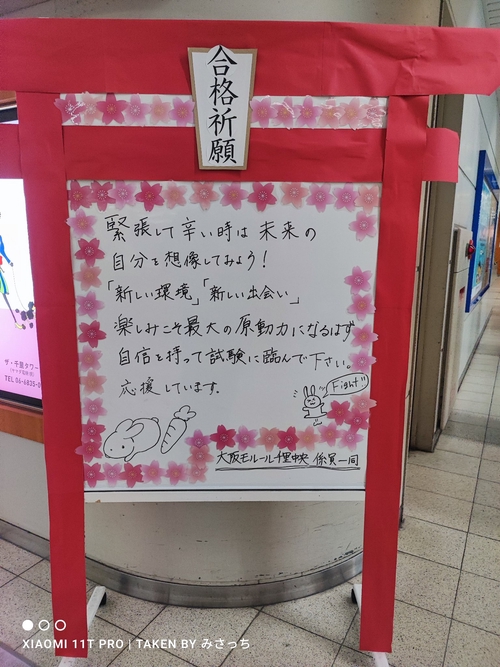 合格祈願
緊張して辛い時は未来の
自分を想像してみよう！
「新しい環境」「新しい出会い」
楽しみこそ最大の原動力になるはず
自信を持って試験に臨んで下さい。
応援しています。
Fight!!
大阪モノレール千里中央 係員一同
ザ・千里タワー
TEL 06-6835-0
XIAOMI 11T PRO | TAKEN BY みさっち